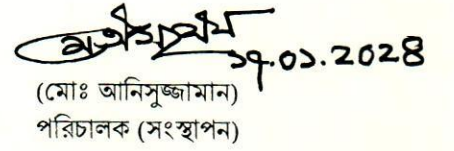 ১৭.০১.2028
(মোঃ আনিসুজ্জামান)
পরিচালক (সংস্থাপন)